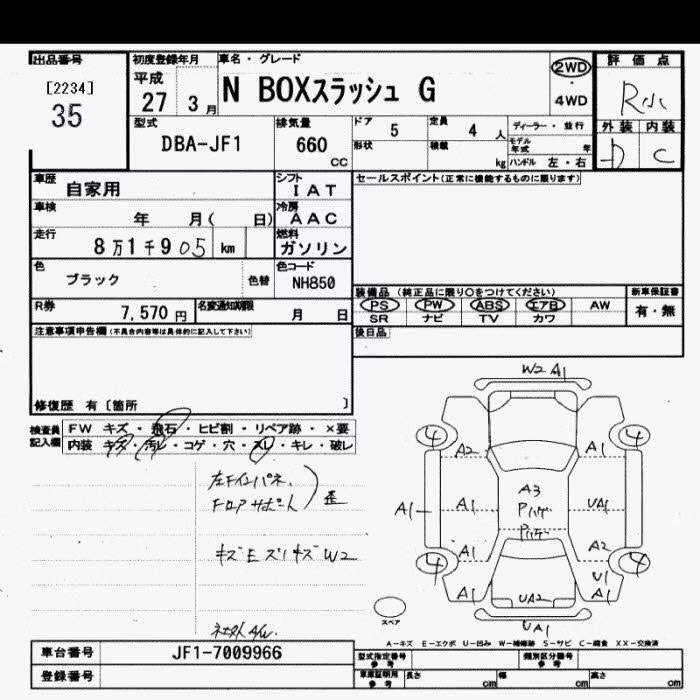 出品番号
[2234]
35
初度登録年月
平成
27 3月
車名・グレード
N BOXスラッシュ G
2WD
・
4WD
評価点
R
外装 内装
D C
型式
DBA-JF1
排気量
660
CC
ドア 5
定員 4 人
形状
積載 kg
ディーラー・並行
モデル年式 年
ハンドル 左・右
車歴 自家用
シフト IAT
セールスポイント(正常に機能するものに限ります)
車検 年 月( 日)
冷房 AAC
走行 8万1千905 km
燃料 ガソリン
色 ブラック 色替
色コード NH850
装備品(純正品に限り○をつけてください)
新車保証書
PS PW ABS エアB AW
有・無
SR ナビ TV カワ
R券 7,570円
名変通知期限 月 日
後日品
注意事項申告欄(不具合内容等は具体的に記入して下さい)
修復歴 有〔箇所 〕
検査員記入欄
FW キズ・飛石・ヒビ割・リペア跡・×要
内装 キズ・汚レ・コゲ・穴・スレ・キレ・破レ
左Fインパネ
Fロアサポート
歪
キズE ズリキズW2
W2 A1
4 4
A2 A1
A3
A1 A1 UA1
Pハゲ
Pハゲ
A1 A2
4 4
U1
A1 A1
UA2
UA1
スペア
A-キズ E-エクボ U-凹み W-補修跡 S-サビ C-腐食 XX-交換済
車台番号 JF1-7009966
登録番号
型式指定番号 参考
類別区分番号 参考
車庫証明用 参考
長さ cm
幅 cm
高さ cm